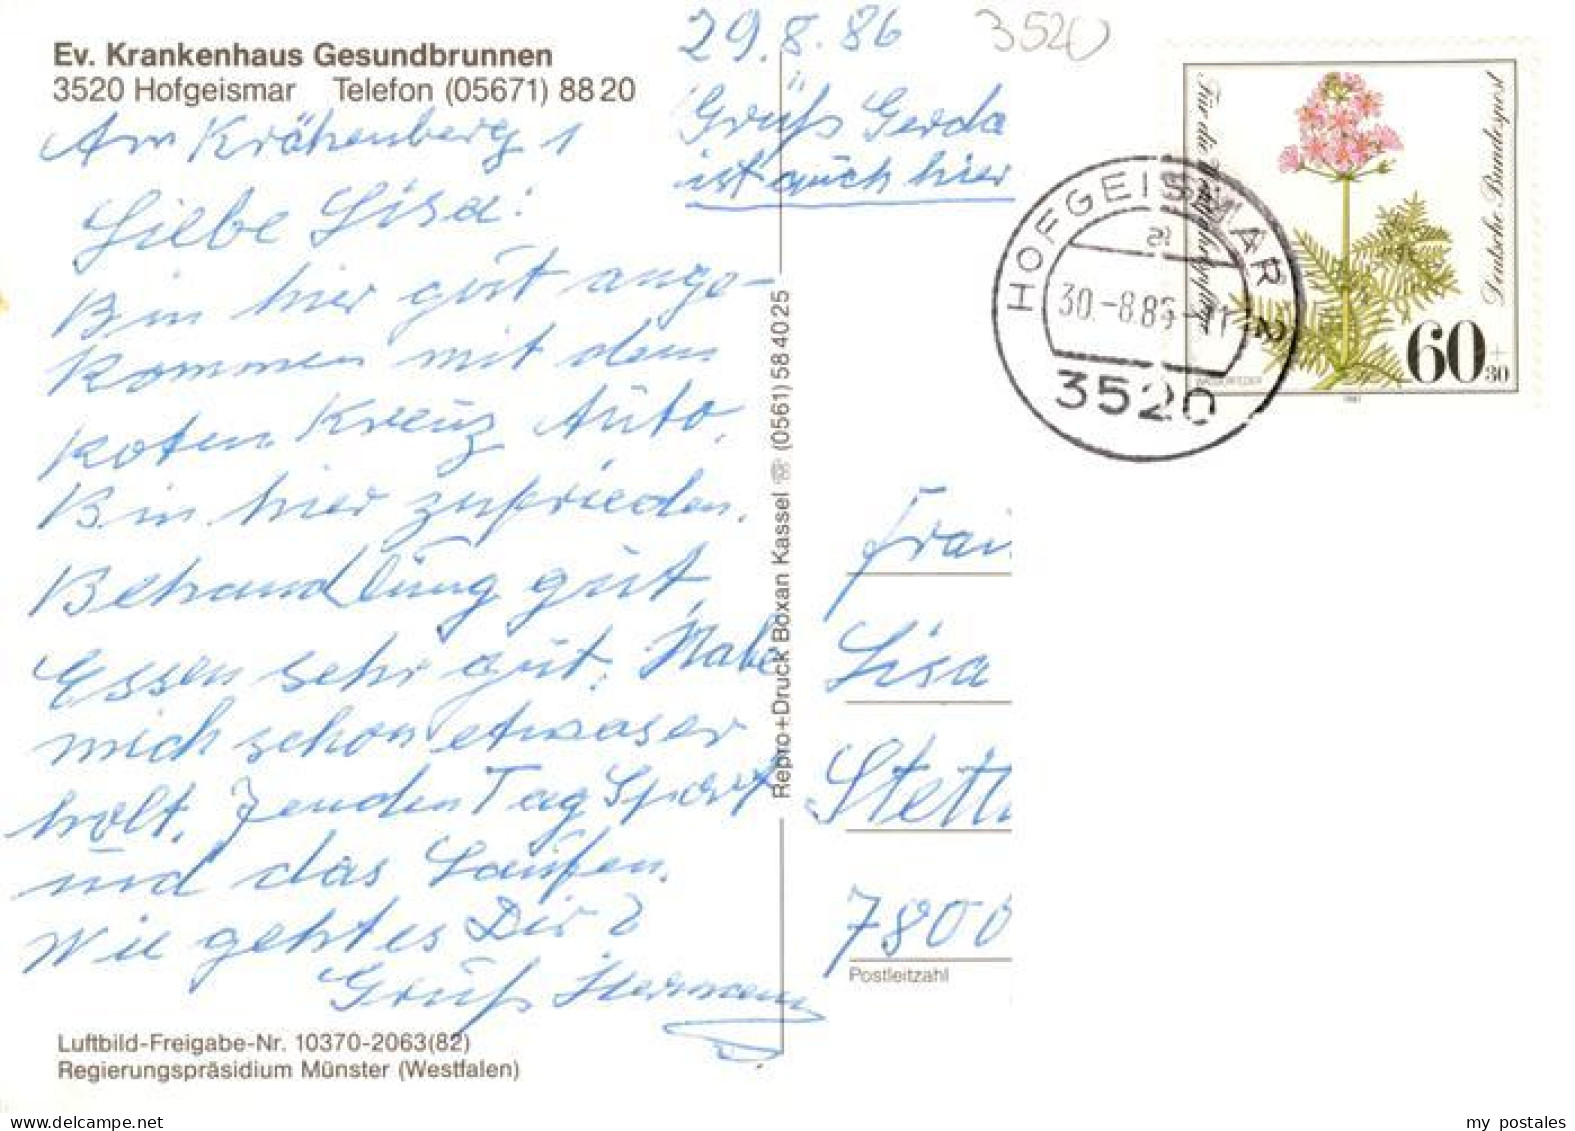 Ev. Krankenhaus Gesundbrunnen
3520 Hofgeismar Telefon (05671) 88 20
Am Krähenberg 1
29.8.86
3520
Grüß Gerda
ist auch hier
Liebe Lisa!
Bin hier gut ange-
kommen mit dem
Roten Kreuz Auto.
Bin hier zufrieden.
Behandlung gut,
Essen sehr gut. Habe
mich schon etwas er
holt. Jenden Tag Sport
und das Laufen.
Wie geht es Dir?
Gruß Hermann
Luftbild-Freigabe-Nr. 10370-2063(82)
Regierungspräsidium Münster (Westfalen)
Repro+Druck Boxan Kassel ☏ (0561) 58 40 25
Für die Wohlfahrtspflege
Deutsche Bundespost
60 + 30
WASSERFEDER
1981
HOFGEISMAR
a
30.-8.86-12
3520
Frau
Lisa
Stett
7800
Postleitzahl
my postales